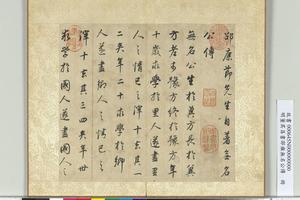 邵康節先生自著無名
公傳
無名公生於冀方長於冀
方老於豫方終於豫方年
十歲求學於里人遂盡里
人之情己之滓十去其一
二矣年二十求學於鄉
人遂盡鄉人之情己之
滓十去其三四矣年卅
求學於國人遂盡國人之
明董其昌書邵雍無名公傳 冊